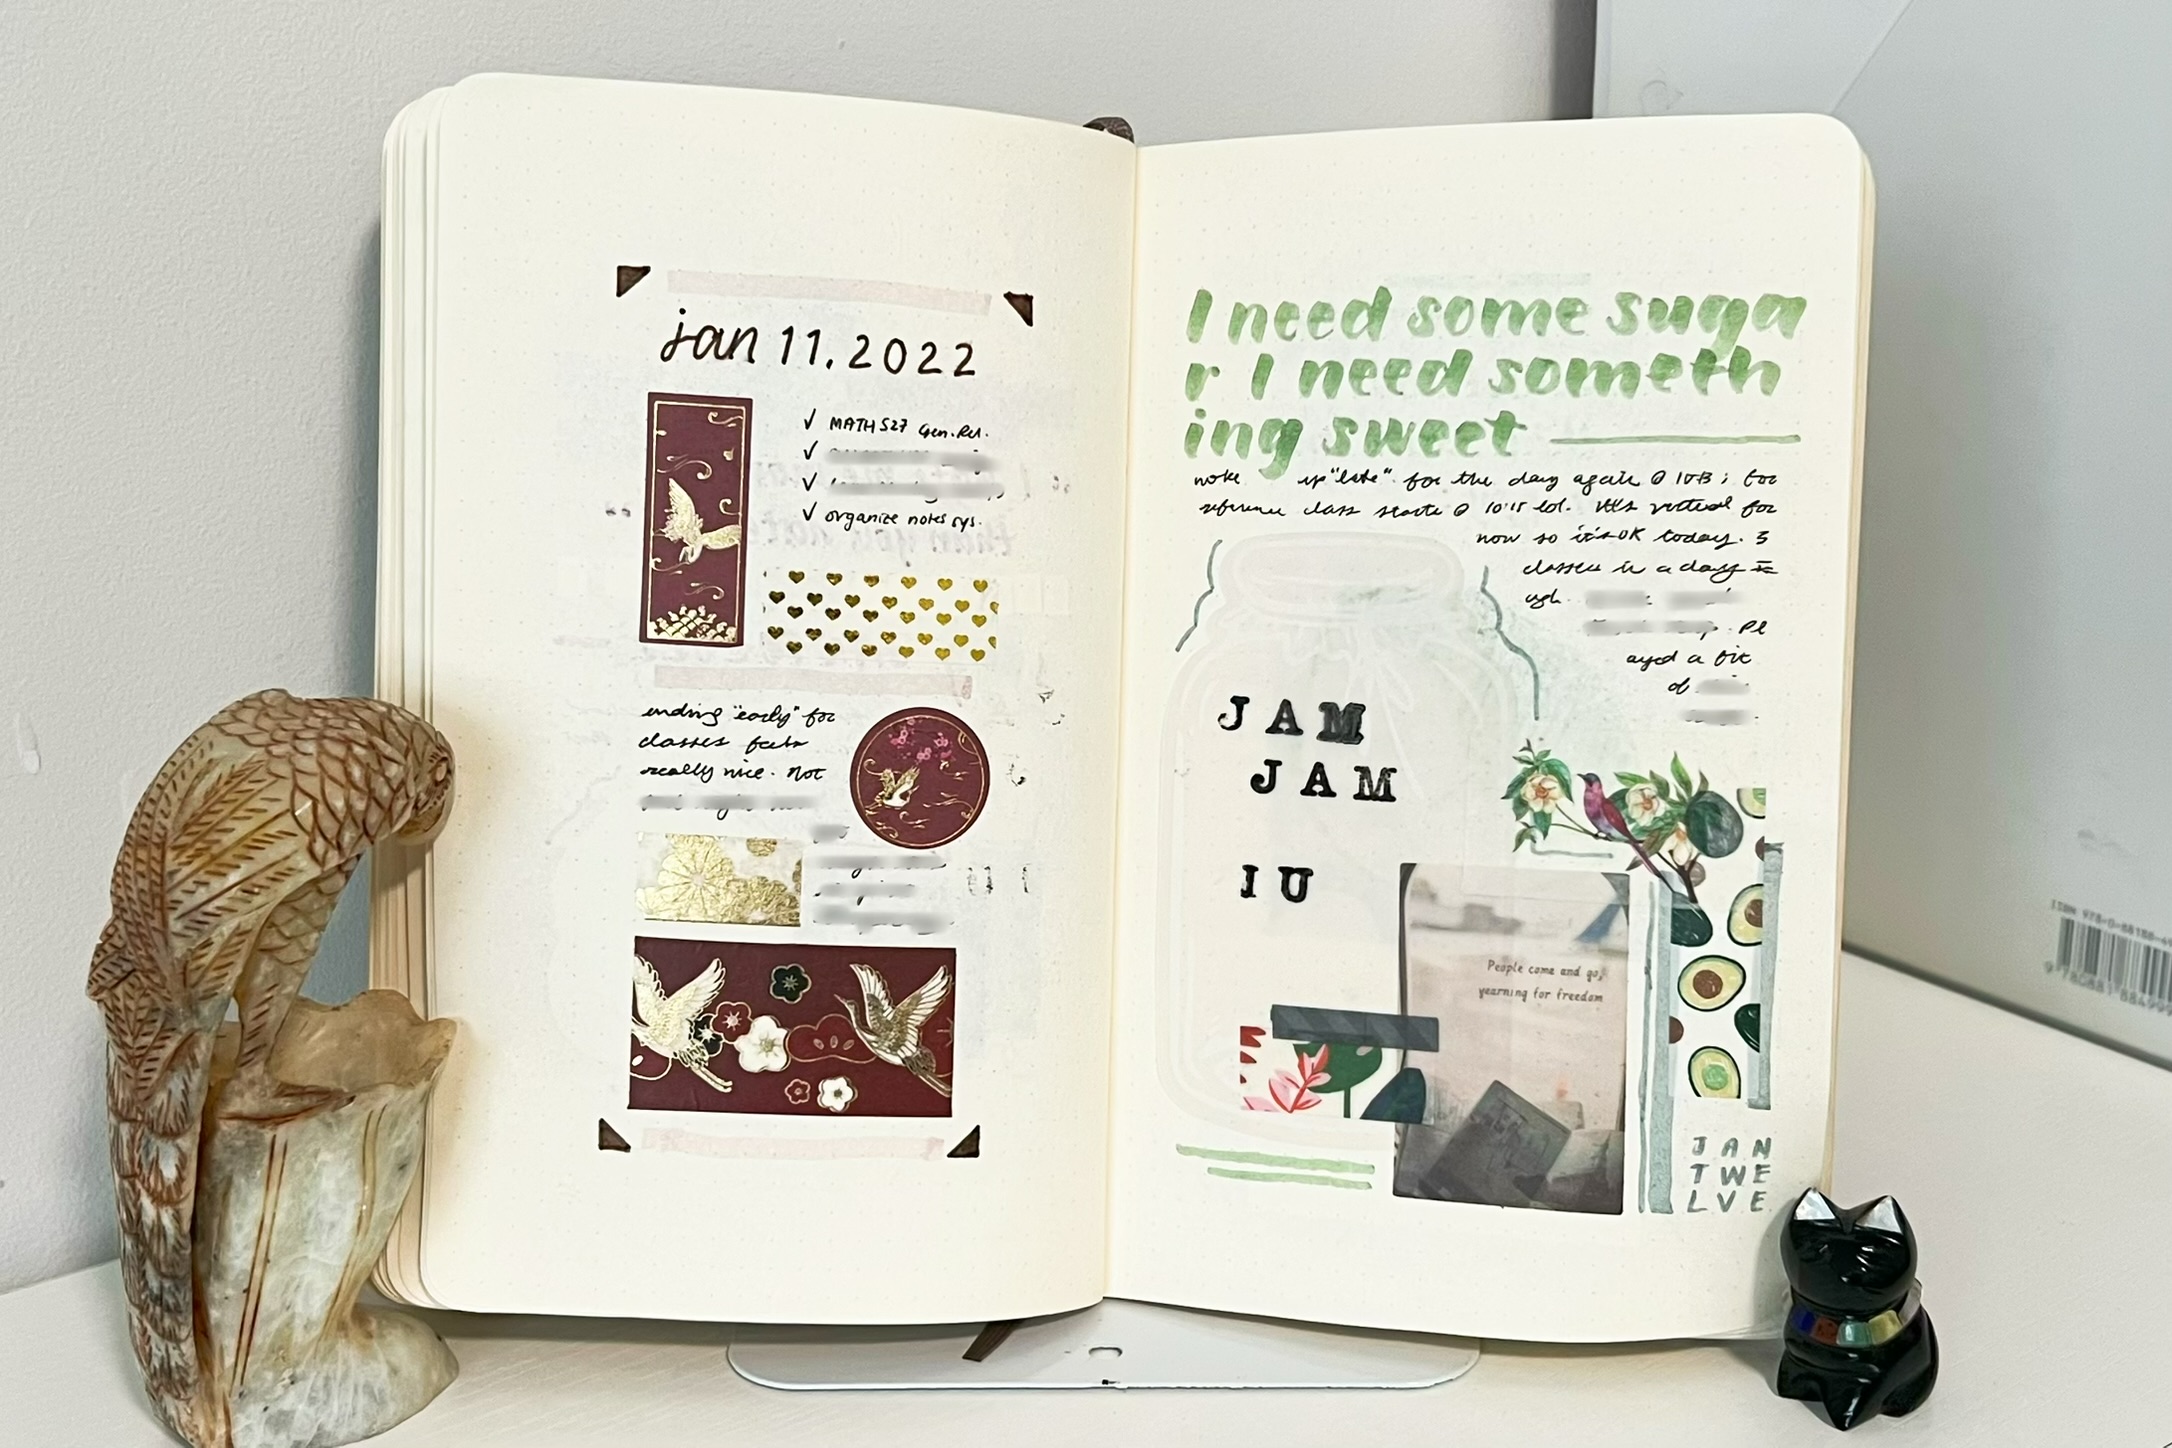 jan 11, 2022
✓ MATH 527 Gen. Rel.
✓
✓
✓ organize notes sys.
ending "early" for
classes feels
really nice. Not
I need some suga
r I need someth
ing sweet
woke up "late" for the day again @ 10:13; for
reference class starts @ 10:15 lol. It's virtual for
now so it's OK today. 3
classes in a day is
ugh. 
Pl
ayed a bit
of
JAM
JAM
IU
People come and go,
yearning for freedom
JAN
TWE
LVE